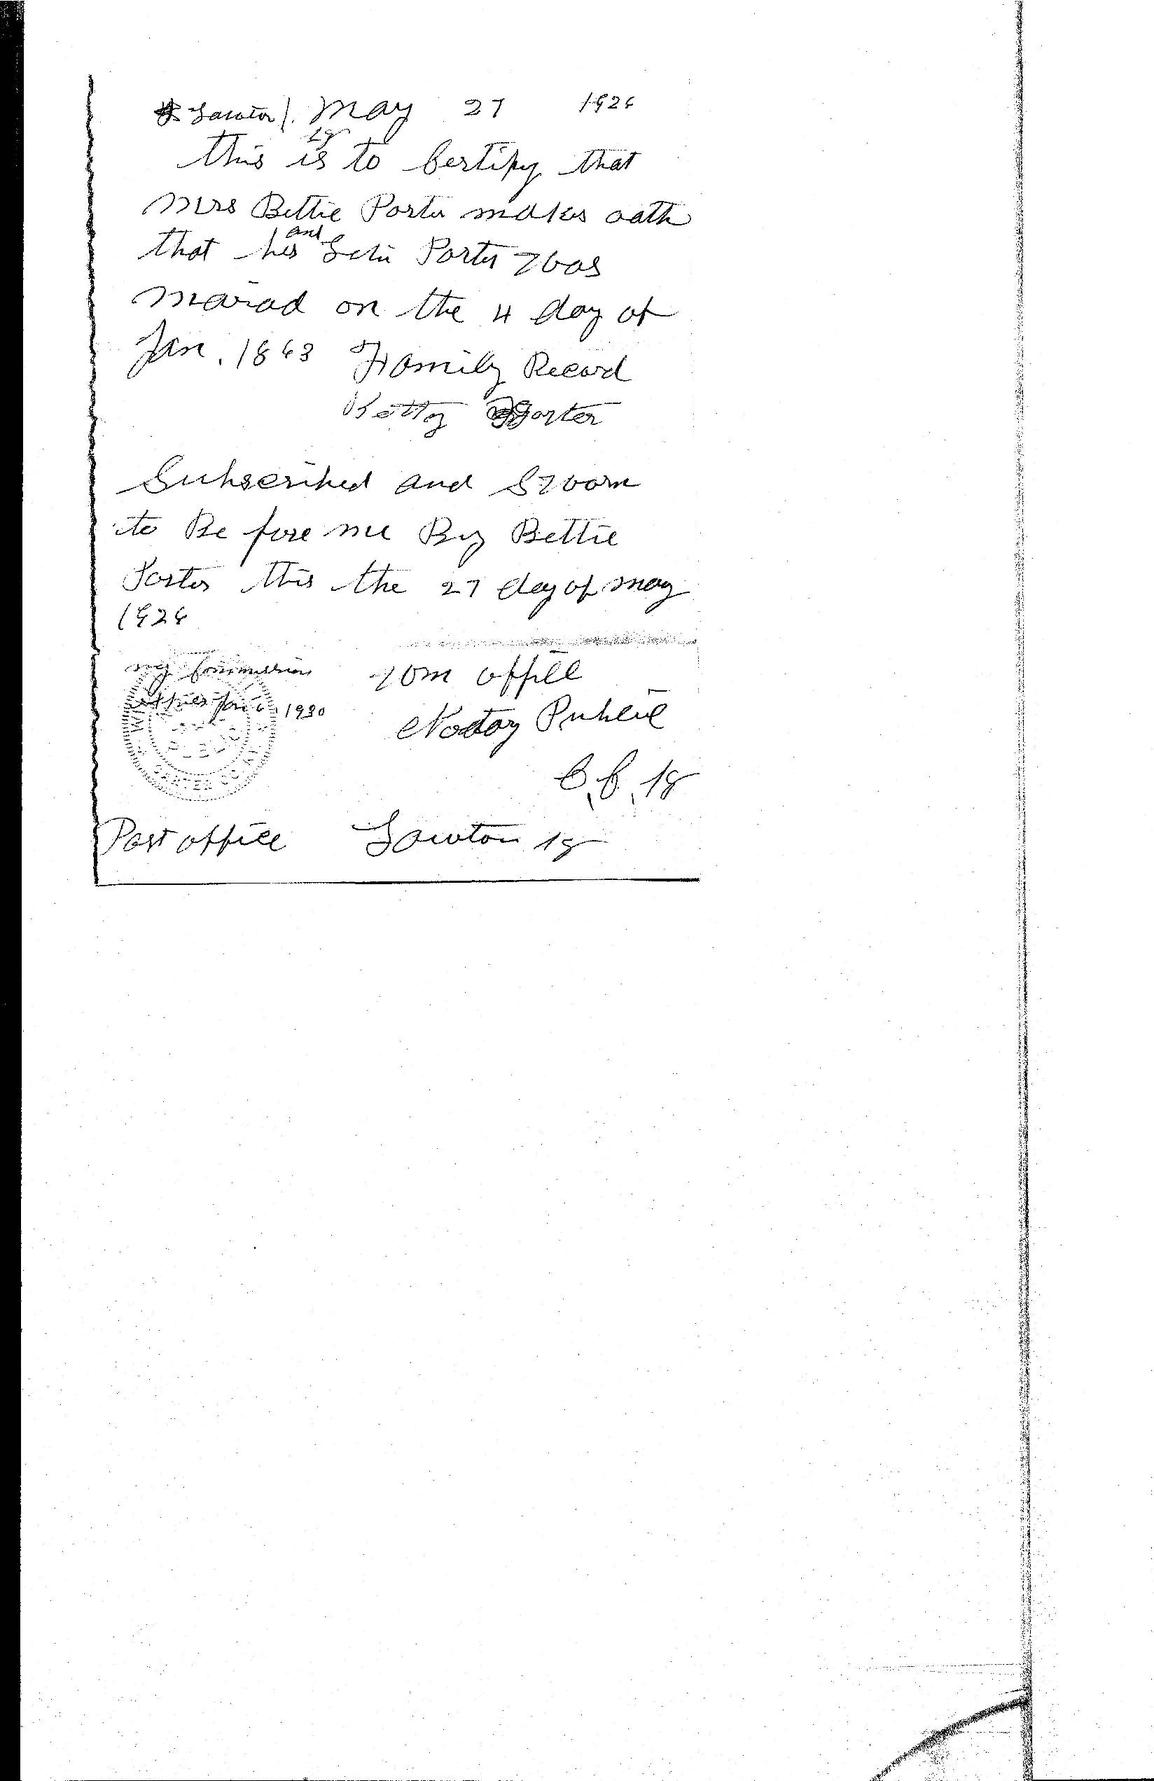 Lawton May 27 1926
Ky
this is to Certify that
Mrs Bettie Porter makes oath
and
that hes Porter Was
marad on the 4 day of
Jan. 1863 Family Record
Betty Porter
Subscribed and Sworn
to Be fore me By Bettie
Porter this the 27 day of may
1926
my Commission Wm offill
expires Jan 1930 Notay Public
PUBLIC
CARTER CO KY
C. C. Ky
Post office Lawton Ky